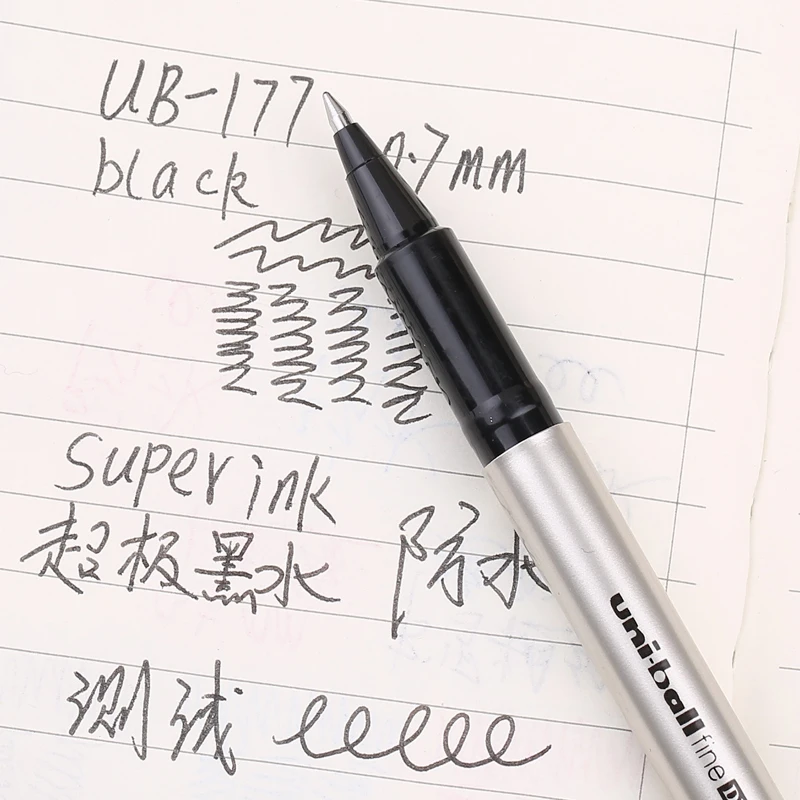 UB-177
black 0.7mm
super ink
超极黑水 防水
测试
uni-ball fine